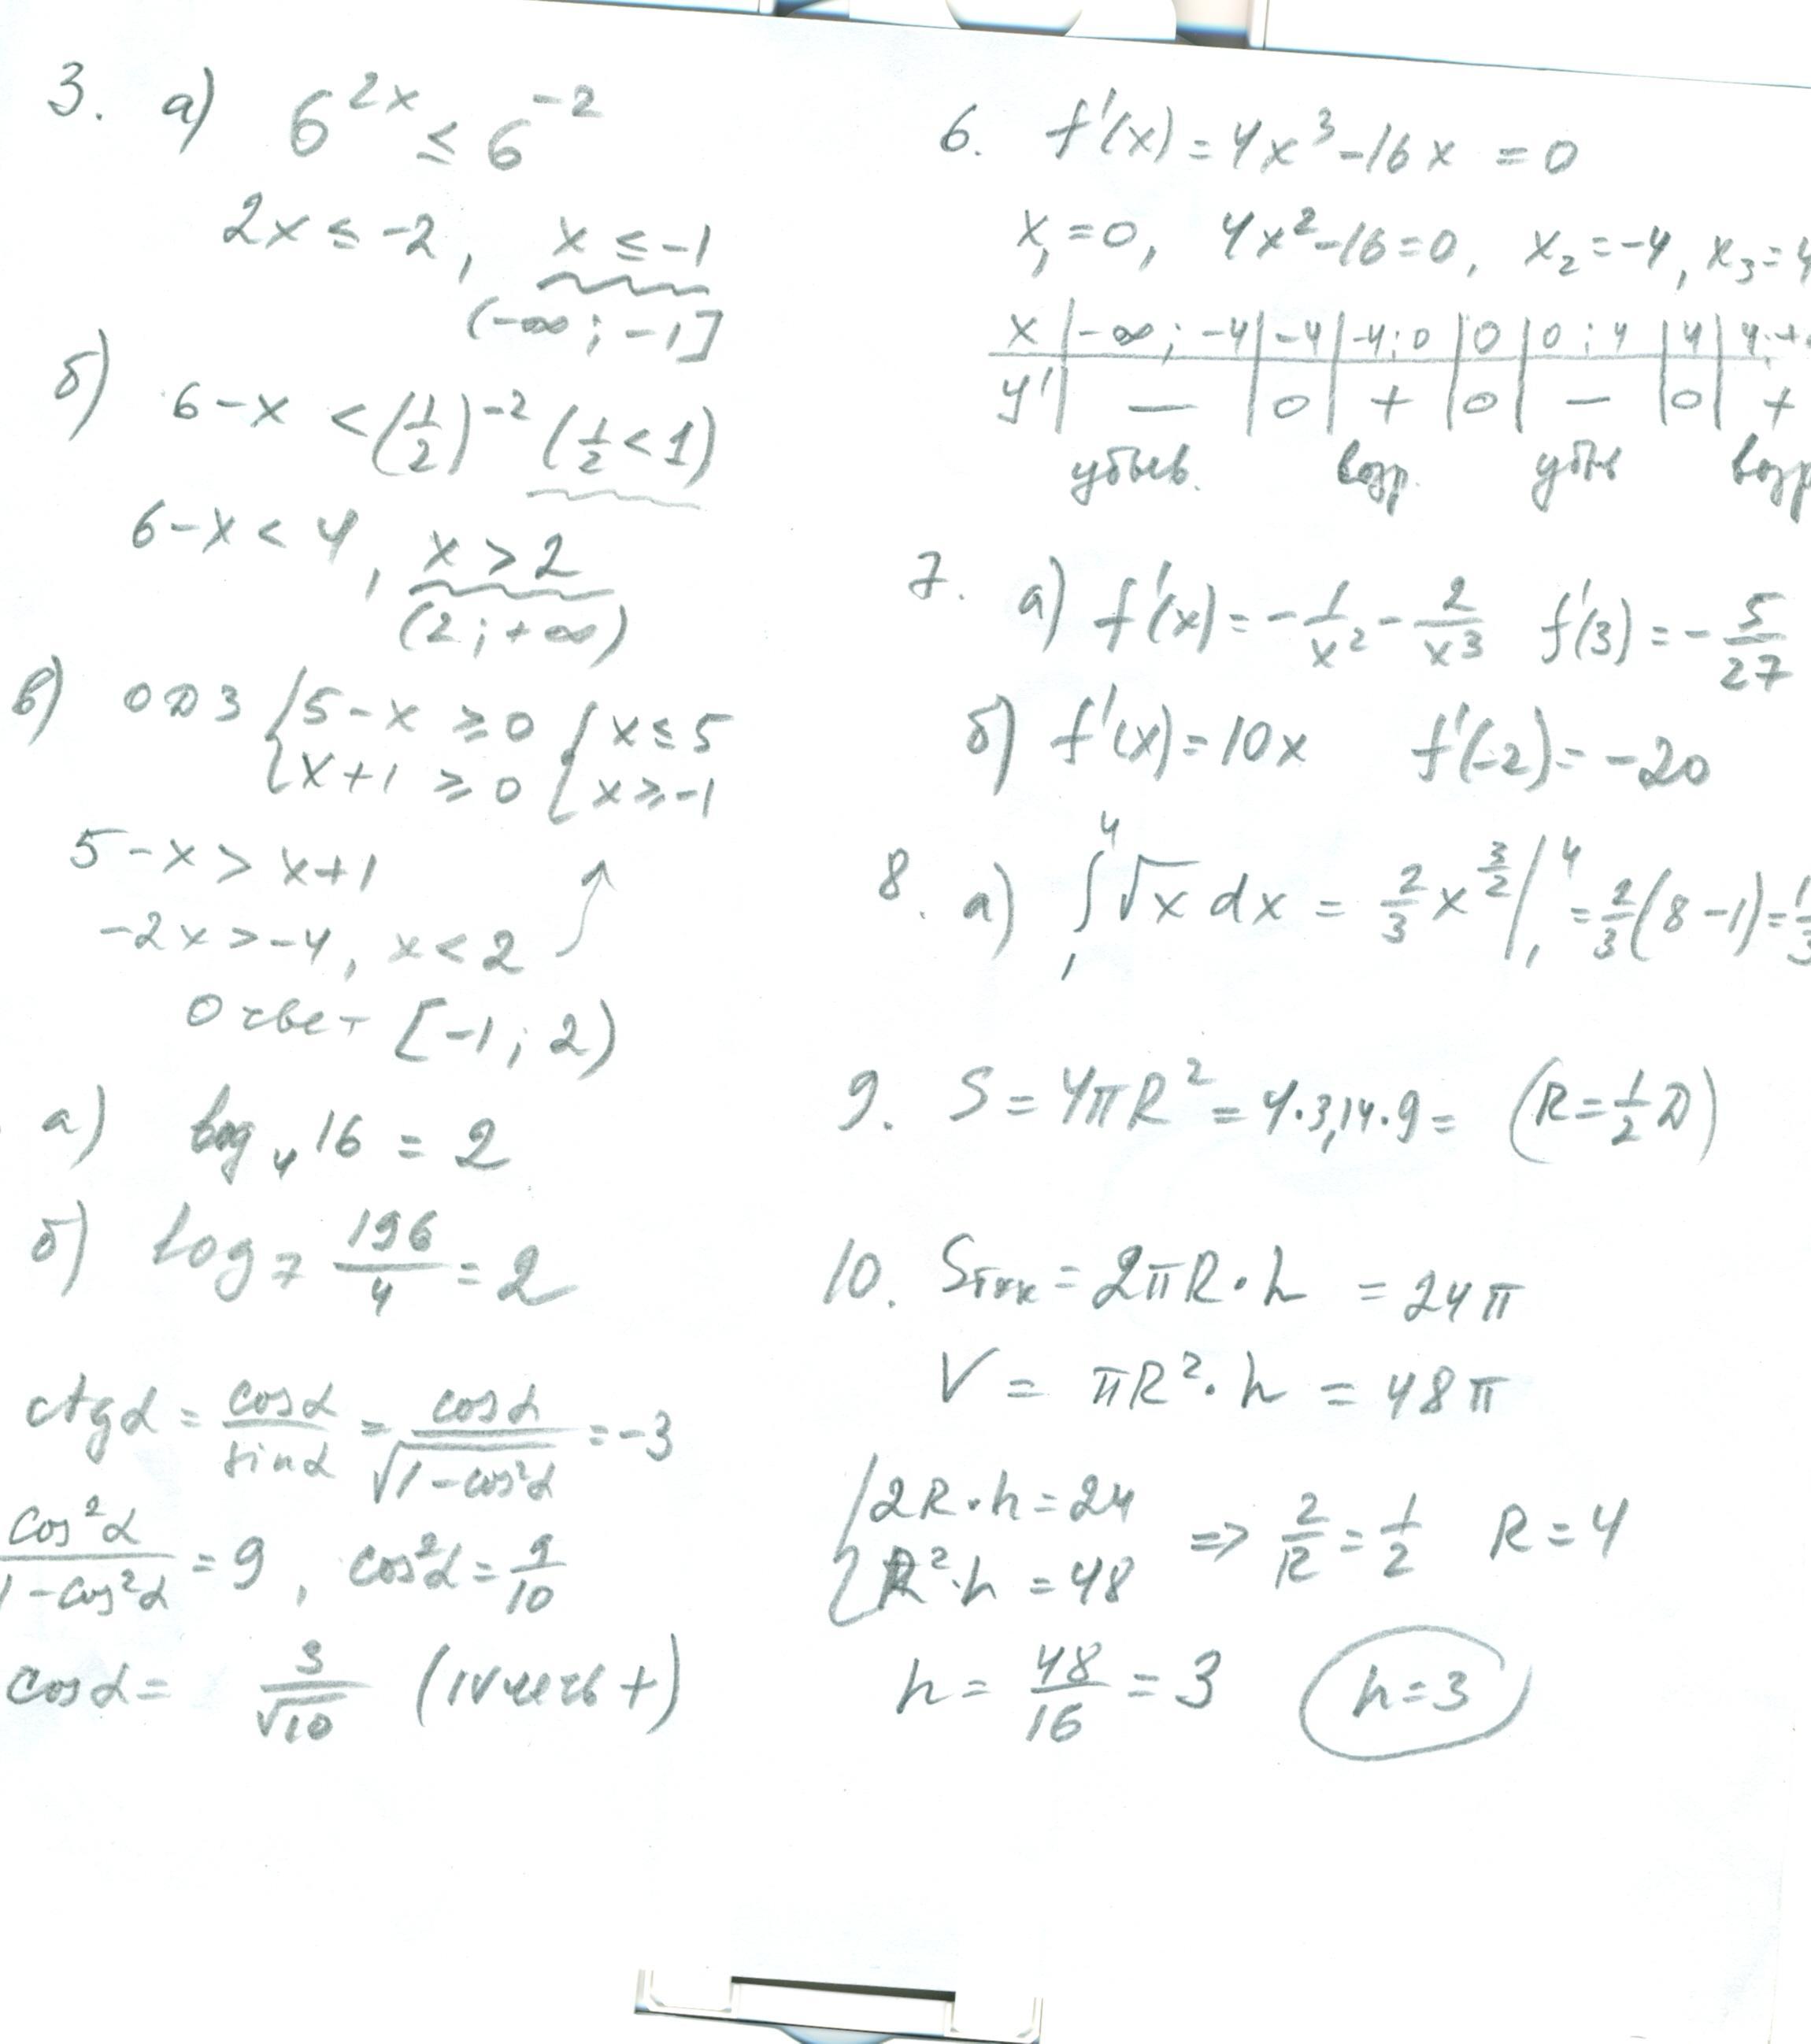 3. а) 6^{2x} ≤ 6^{-2}
2x ≤ -2, x ≤ -1
(-∞; -1]
б) 6-x < (1/2)^{-2} (1/2 < 1)
6-x < 4, x > 2
(2; +∞)
в) ОДЗ { 5-x ≥ 0 { x ≤ 5
x+1 ≥ 0 x ≥ -1
5-x > x+1
-2x > -4, x < 2
Ответ [-1; 2)
а) log_4 16 = 2
б) log_7 196/4 = 2
ctg α = cos α / sin α = cos α / √(1-cos²α) = -3
cos²α / (1-cos²α) = 9, cos²α = 9/10
cos α = 3/√10 (IV четв +)
6. f'(x) = 4x³-16x = 0
x₁ = 0, 4x²-16=0, x₂ = -4, x₃ = 4
x | -∞; -4 | -4 | -4; 0 | 0 | 0; 4 | 4 | 4; +
y' | — | 0 | + | 0 | — | 0 | +
убыв. возр. убыв возр
7. а) f'(x) = -1/x² - 2/x³ f'(3) = -5/27
б) f'(x) = 10x f'(-2) = -20
8. а) ∫₁⁴ √x dx = 2/3 x^{3/2} |₁⁴ = 2/3 (8-1) =
9. S = 4πR² = 4·3,14·9 = (R = 1/2 D)
10. S = 2πR·h = 24π
V = πR²·h = 48π
{ 2R·h = 24
R²·h = 48 => 2/R = 1/2 R = 4
h = 48/16 = 3 h = 3